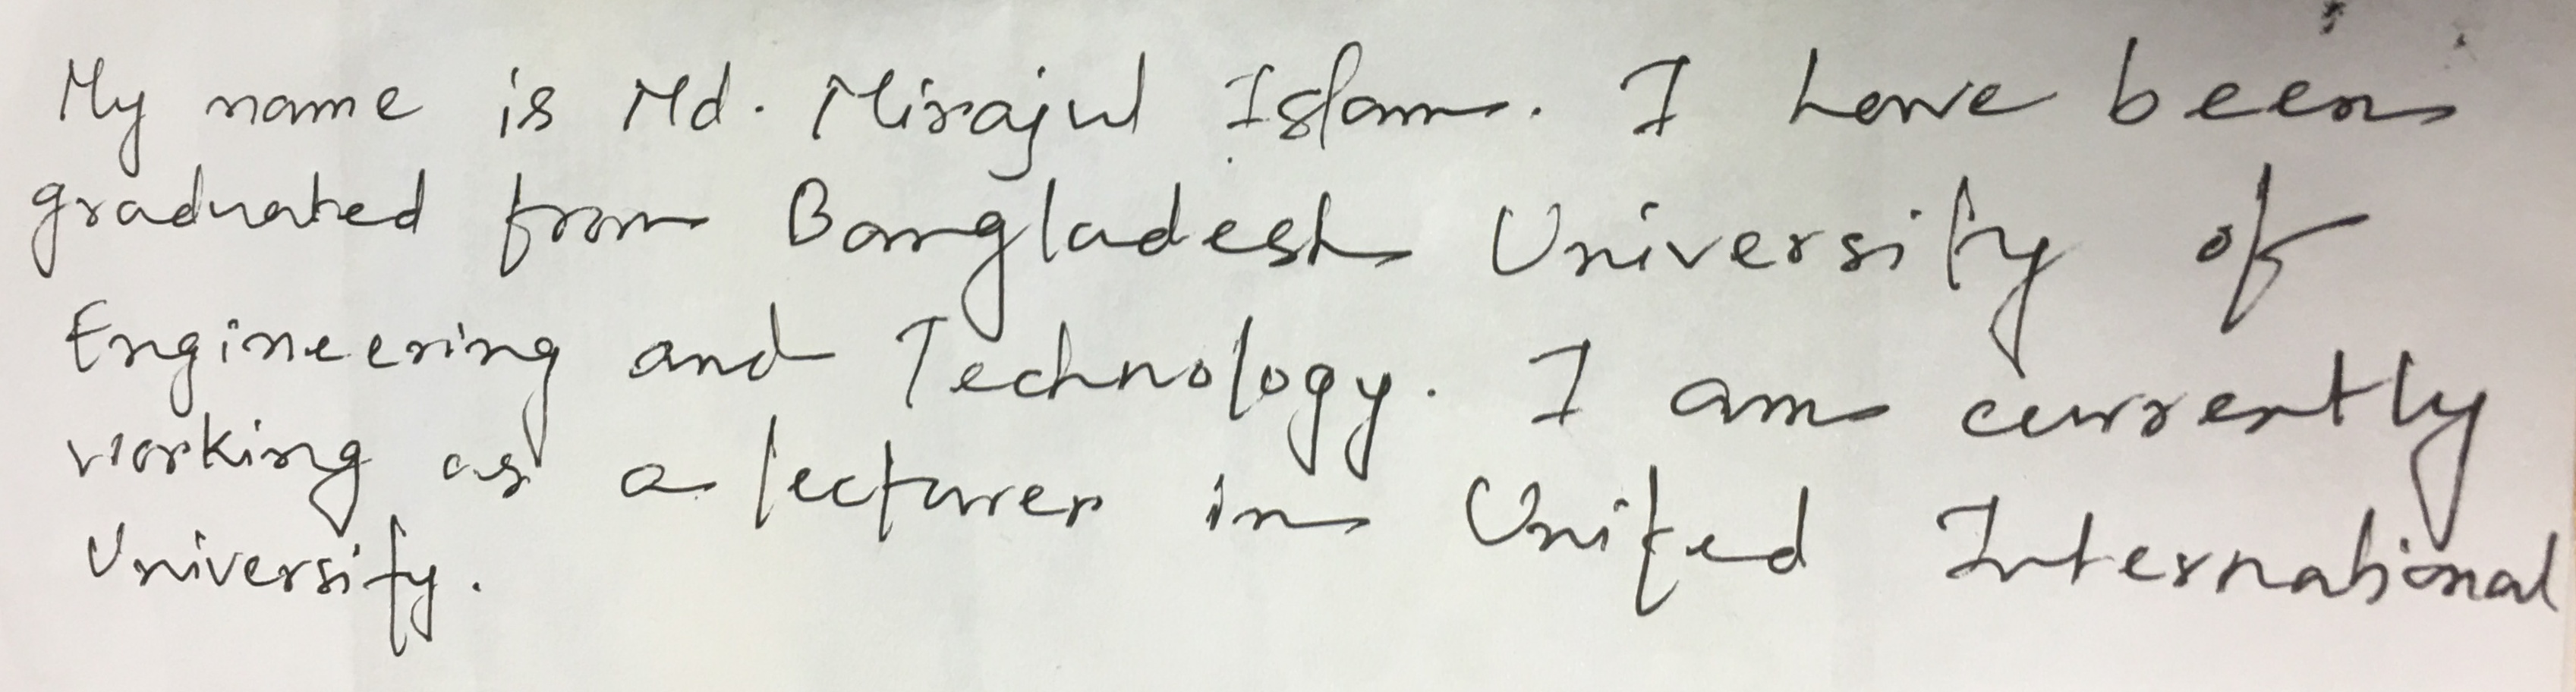 My name is Md. Mirajul Islam. I have been
graduated from Bangladesh University of
Engineering and Technology. I am currently
working as a lecturer in United International
University.